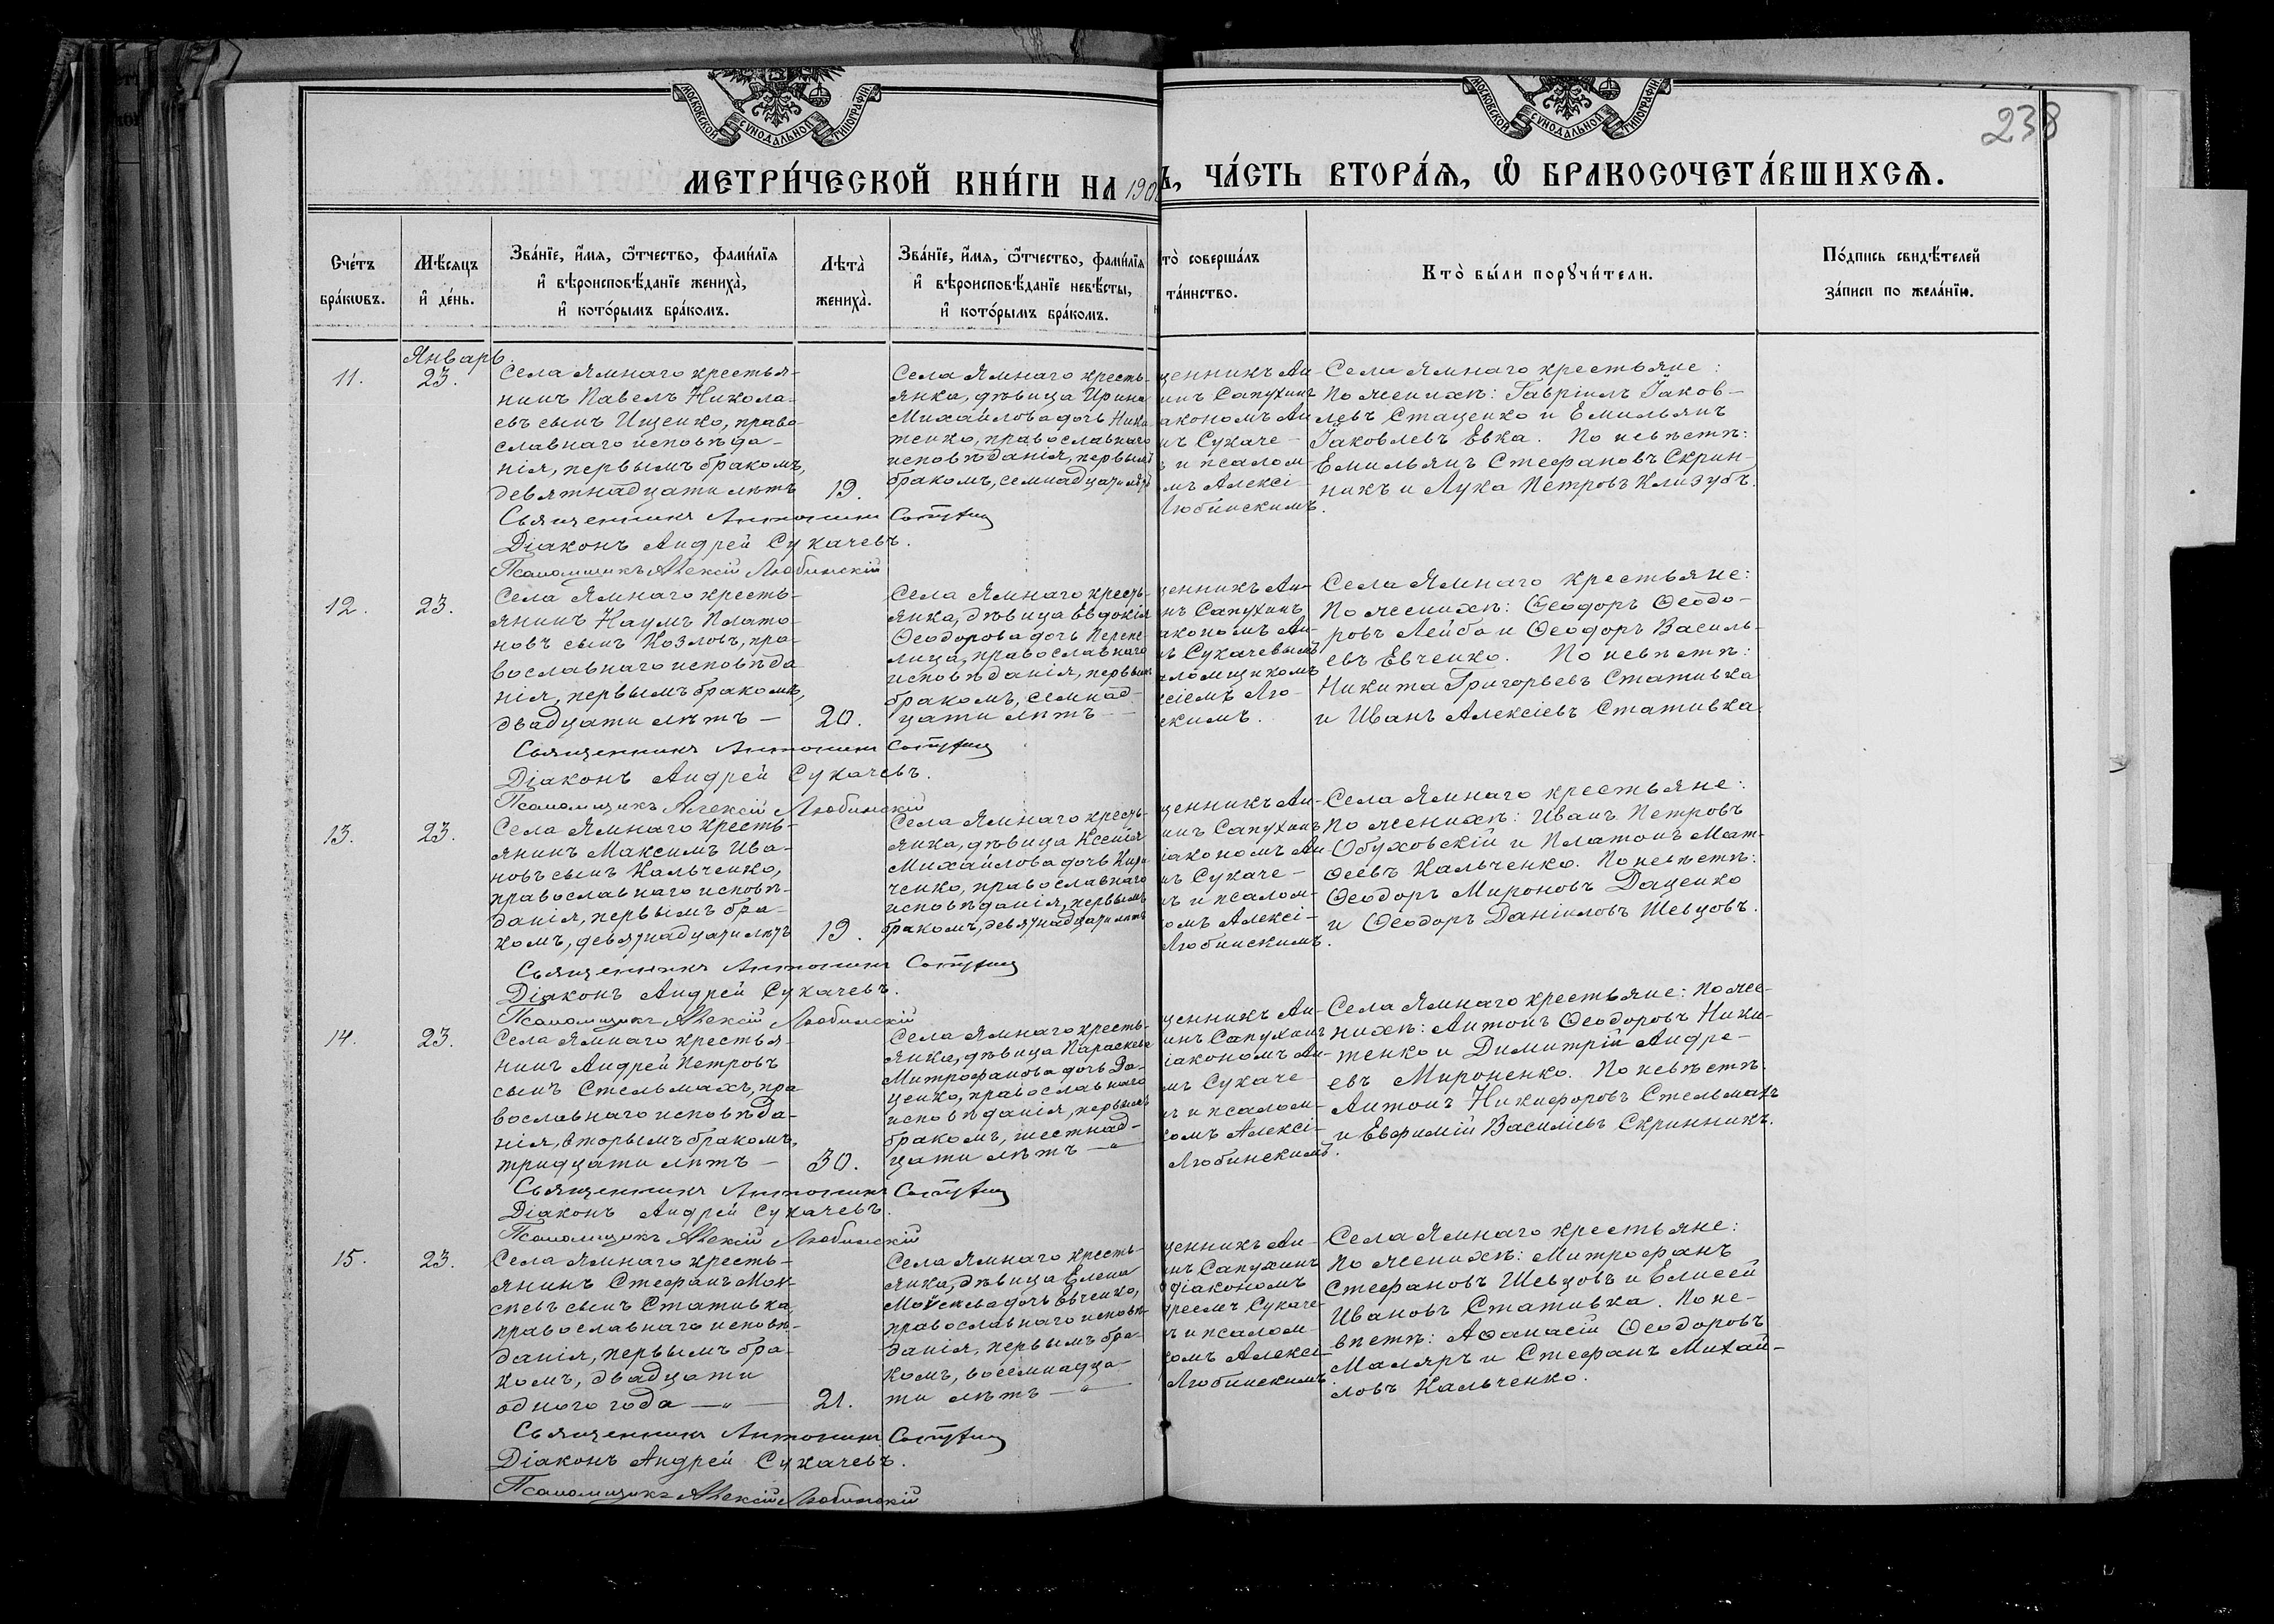 МОСКОВСКОЙ СѴНОДАЛЬНОЙ ТИПОГРАФІИ
МОСКОВСКОЙ СѴНОДАЛЬНОЙ ТИПОГРАФІИ
238
МЕТРИ́ЧЕСКОЙ КНИ́ГИ НА 190
Ъ, ЧА́СТЬ ВТОРА́Ѧ, Ѽ БРАКОСОЧЕТА́ВШИХСѦ.
Сче́тъ бра́кѡвъ.
Мѣ́сяцъ и҆ де́нь.
Зва́нїе, и҆́мя, ѻ҆́тчество, фами́лїя
и҆ вѣроисповѣ́данїе жениха̀,
и҆ кото́рымъ бра́комъ.
Лѣта̀ жениха̀.
Зва́нїе, и҆́мя, ѻ҆́тчество, фами́лїя
и҆ вѣроисповѣ́данїе невѣ́сты,
и҆ кото́рымъ бра́комъ.
то̀ соверша́лъ
та́инство.
Кто̀ бы́ли порꙋчи́тели.
По́дпись свидѣ́телей
за́писи по жела́нїю.
Январь.
11.
23.
Села Ямнаго крестья-
нинъ Павелъ Никола-
евъ сынъ Ищенко, право
славнаго исповѣда-
нія, первымъ бракомъ,
девятнадцати лѣтъ
19.
Села Ямнаго кресть-
янка, дѣвица Ирина
Михайлова дочь Ники-
тенко, православнаго
исповѣданія, первымъ
бракомъ, семнадцати лѣтъ
щенникъ Ан-
инъ Сапухинъ
акономъ Ан
ъ Сукаче-
ъ и псалом-
мъ Алексі-
Любинскимъ.
Села Ямнаго крестьяне:
По женихѣ: Гавріилъ Іаков-
левъ Стаценко и Емильянъ
Іаковлевъ Евка. По невѣстѣ:
Емильянъ Стефановъ Скрин-
никъ и Лука Петровъ Клизубъ.
Священникъ Антонинъ
Діаконъ Андрей Сукачевъ.
Псаломщикъ Алексій Любинскій
12.
23.
Села Ямнаго кресть-
янинъ Наумъ Плато-
новъ сынъ Козловъ, пра-
вославнаго исповѣда
нія, первымъ бракомъ,
двадцати лѣтъ —
20.
Села Ямнаго кресть-
янка, дѣвица Евдокія
Ѳеодорова дочь Перепе-
лица, православнаго
исповѣданія, первымъ
бракомъ, семнад-
цати лѣтъ —
щенникъ Ан-
нъ Сапухинъ
акономъ Ан-
ъ Сукачевымъ
аломщикомъ
сіемъ Лю-
скимъ.
Села Ямнаго крестьяне:
По женихѣ: Ѳеодоръ Ѳеодо-
ровъ Лейба и Ѳеодоръ Василь-
евъ Евченко. По невѣстѣ:
Никита Григорьевъ Стативка
и Иванъ Алексіевъ Стативка.
Священникъ Антонинъ
Діаконъ Андрей Сукачевъ.
Псаломщикъ Алексій Любинскій
13.
23.
Села Ямнаго кресть-
янинъ Максимъ Ива-
новъ сынъ Кальченко,
православнаго исповѣ-
данія, первымъ бра-
комъ, девятнадцати лѣтъ
19.
Села Ямнаго кресть-
янка, дѣвица Ксенія
Михайлова дочь Кири
ченко, православнаго
исповѣданія, первымъ
бракомъ, девятнадцати лѣтъ
щенникъ Ан-
инъ Сапухинъ
іакономъ Ан
ъ Сукаче-
ъ и псалом-
омъ Алексі-
Любинскимъ.
Села Ямнаго крестьяне:
По женихѣ: Иванъ Петровъ
Обуховскій и Платонъ Мат-
ѳеевъ Кальченко. По невѣстѣ:
Ѳеодоръ Мироновъ Даценко
и Ѳеодоръ Даніиловъ Шевцовъ.
Священникъ Антонинъ
Діаконъ Андрей Сукачевъ.
Псаломщикъ Алексій Любинскій
14.
23.
Села Ямнаго крестья-
нинъ Андрей Петровъ
сынъ Стельмахъ, пра
вославнаго исповѣда-
нія, вторымъ бракомъ,
тридцати лѣтъ —
30.
Села Ямнаго кресть-
янка, дѣвица Параскева
Митрофанова дочь Да-
ценко, православнаго
исповѣданія, первымъ
бракомъ, шестнад-
цати лѣтъ —
щенникъ Ан-
инъ Сапухинъ
іакономъ Ан-
мъ Сукаче-
ъ и псалом-
комъ Алексі-
Любинскимъ.
Села Ямнаго крестьяне: По же-
нихѣ: Антонъ Ѳеодоровъ Ники-
тенко и Димитрій Андре-
евъ Мироненко. По невѣстѣ:
Антонъ Никифоровъ Стельмахъ
и Евфимій Василіевъ Скринникъ.
Священникъ Антонинъ
Діаконъ Андрей Сукачевъ.
Псаломщикъ Алексій Любинскій
15.
23.
Села Ямнаго кресть-
янинъ Стефанъ Мои-
сѣевъ сынъ Стативка,
православнаго исповѣ-
данія, первымъ бра-
комъ, двадцати
одного года —"—
21.
Села Ямнаго кресть-
янка, дѣвица Елена
Моѵсеева дочь Евченко,
православнаго исповѣ-
данія, первымъ бра-
комъ, восемнадца-
ти лѣтъ —"—
щенникъ Ан-
нъ Сапухинъ
діакономъ
реемъ Сукаче-
ъ и псалом-
комъ Алексі-
Любинскимъ
Села Ямнаго крестьяне:
По женихѣ: Митрофанъ
Стефановъ Шевцовъ и Елисей
Ивановъ Стативка. По не-
вѣстѣ: Аѳанасій Ѳеодоровъ
Маляръ и Стефанъ Михай-
ловъ Кальченко.
Священникъ Антонинъ
Діаконъ Андрей Сукачевъ.
Псаломщикъ Алексій Любинскій